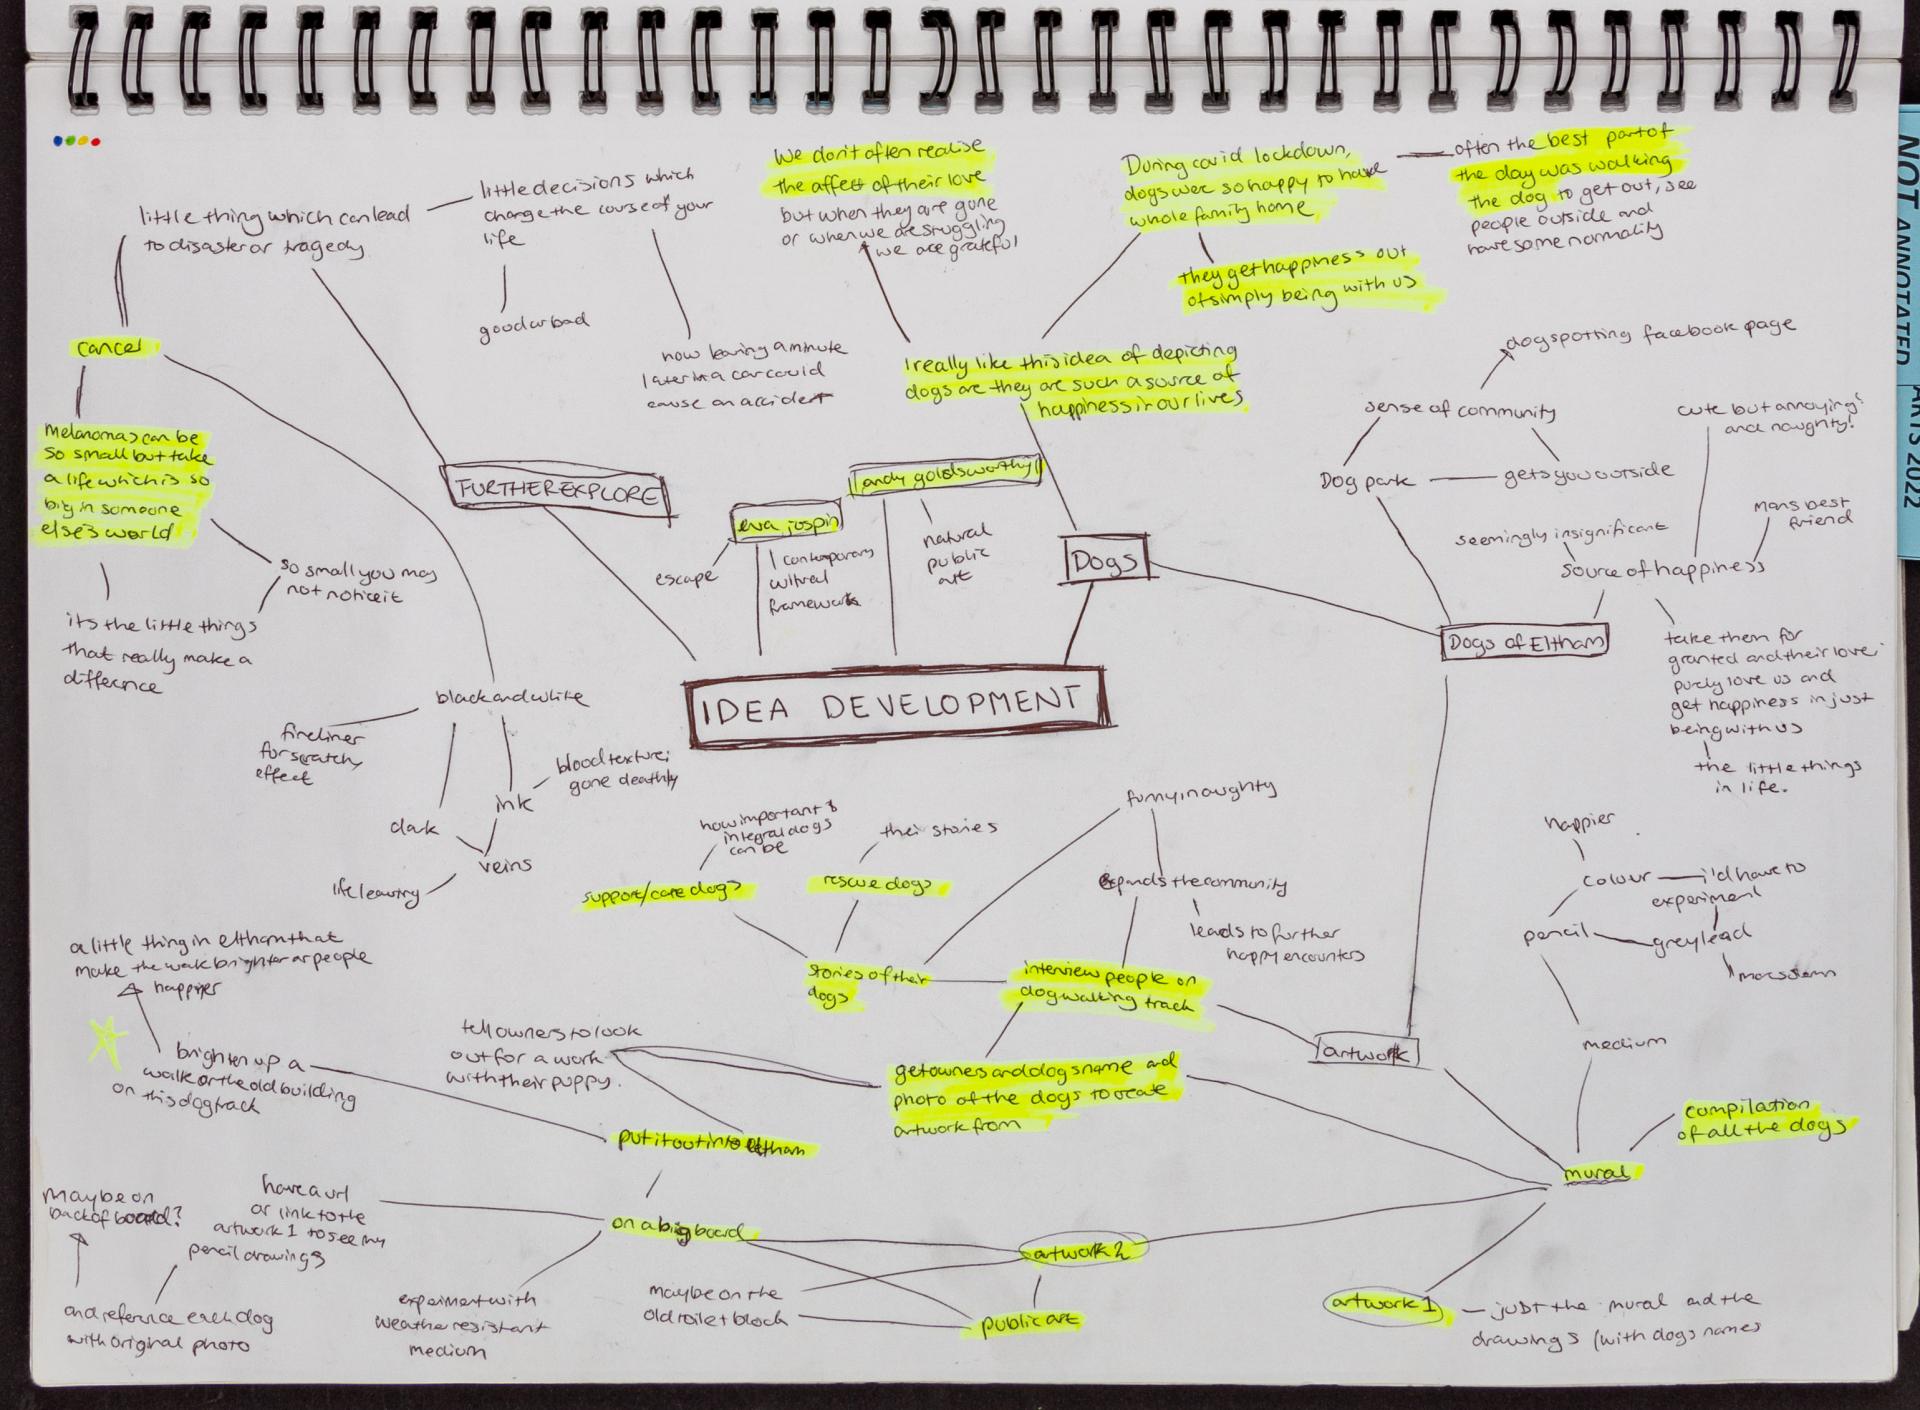 NOT ANNOTATED
ARTS 2022
little thing which can lead
to disaster or tragedy
little decisions which
change the course of your
life
good or bad
how leaving a minute
later in a car could
cause an accident
We don't often realise
the affect of their love
but when they are gone
or when we are struggling
we are grateful
During covid lockdown,
dogs were so happy to have
whole family home
often the best part of
the day was walking
the dog to get out, see
people outside and
have some normality
they get happiness out
of simply being with us
I really like this idea of depicting
dogs are they are such a source of
happiness in our lives
cancer
melanomas can be
so small but take
a life which is so
big in someone
else's world
so small you may
not notice it
its the little things
that really make a
difference
FURTHER EXPLORE
eva jospin
escape
contemporary
cultural
framework
andy goldsworthy
natural
public
art
Dogs
dogspotting facebook page
sense of community
Dog park
gets you outside
cute but annoying
and naughty!
mans best
friend
seemingly insignificant
source of happiness
Dogs of Eltham
take them for
granted and their love;
purely love us and
get happiness in just
being with us
the little things
in life.
IDEA DEVELOPMENT
black and white
fineliner
for scratchy
effect
blood texture;
gone deathly
ink
dark
veins
life leaving
how important &
integral dogs
can be
support/care dogs
their stories
rescue dogs
funny/naughty
expands the community
leads to further
happy encounters
stories of their
dogs
interview people on
dog walking track
artwork
happier
colour
i'd have to
experiment
pencil
greylead
medium
a little thing in eltham that
make the walk brighter or people
happier
brighten up a
walk or the old building
on this dog track
tell owners to look
out for a work
with their puppy.
get owners and dogs name and
photo of the dogs to create
artwork from
put it out into eltham
compilation
of all the dogs
mural
maybe on
back of board?
have a url
or link to the
artwork 1 to see my
pencil drawings
on a big board
artwork 2
and reference each dog
with original photo
experiment with
weather resistant
medium
maybe on the
old toilet block
public art
artwork 1
just the mural and the
drawings (with dogs names